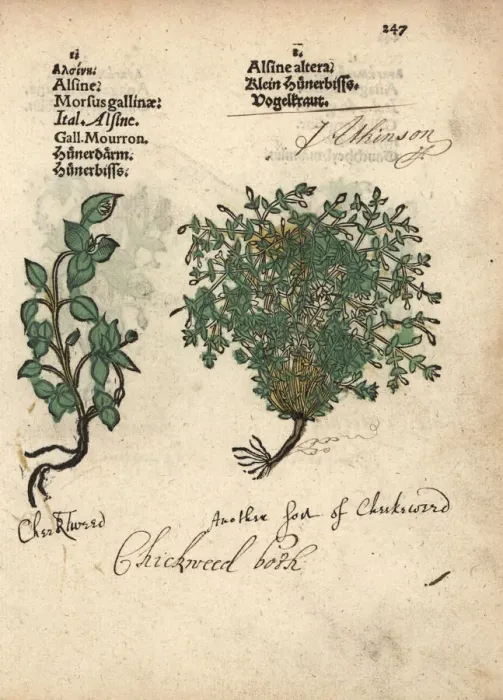 247
1.
Αλσίνη.
Alsine.
Morsus gallinæ.
Ital. Alsine.
Gall. Mourron.
Hünerdärm.
Hünerbiss.
2.
Alsine altera.
Klein Hünerbiss.
Vogelkraut.
J Atkinson
Chekweed
Another sort of Chekeweed
Chickweed both